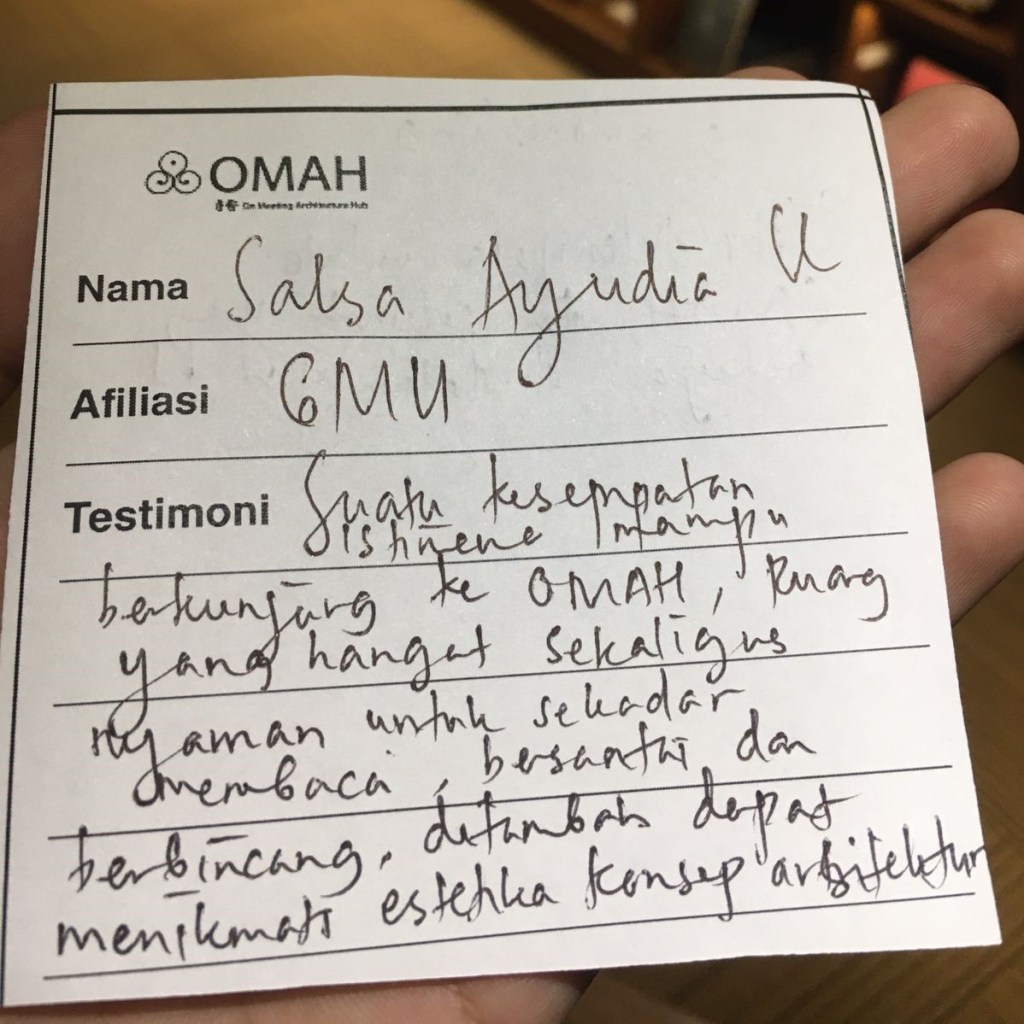 OMAH
Om Meeting Architecture Hub
Nama Salsa Ayudia U
Afiliasi GMU
Testimoni Suatu kesempatan
istimewa mampu
berkunjung ke OMAH, Ruang
yang hangat sekaligus
nyaman untuk sekadar
membaca, bersantai, dan
berbincang, ditambah dapat
menikmati estetika konsep arsitektur